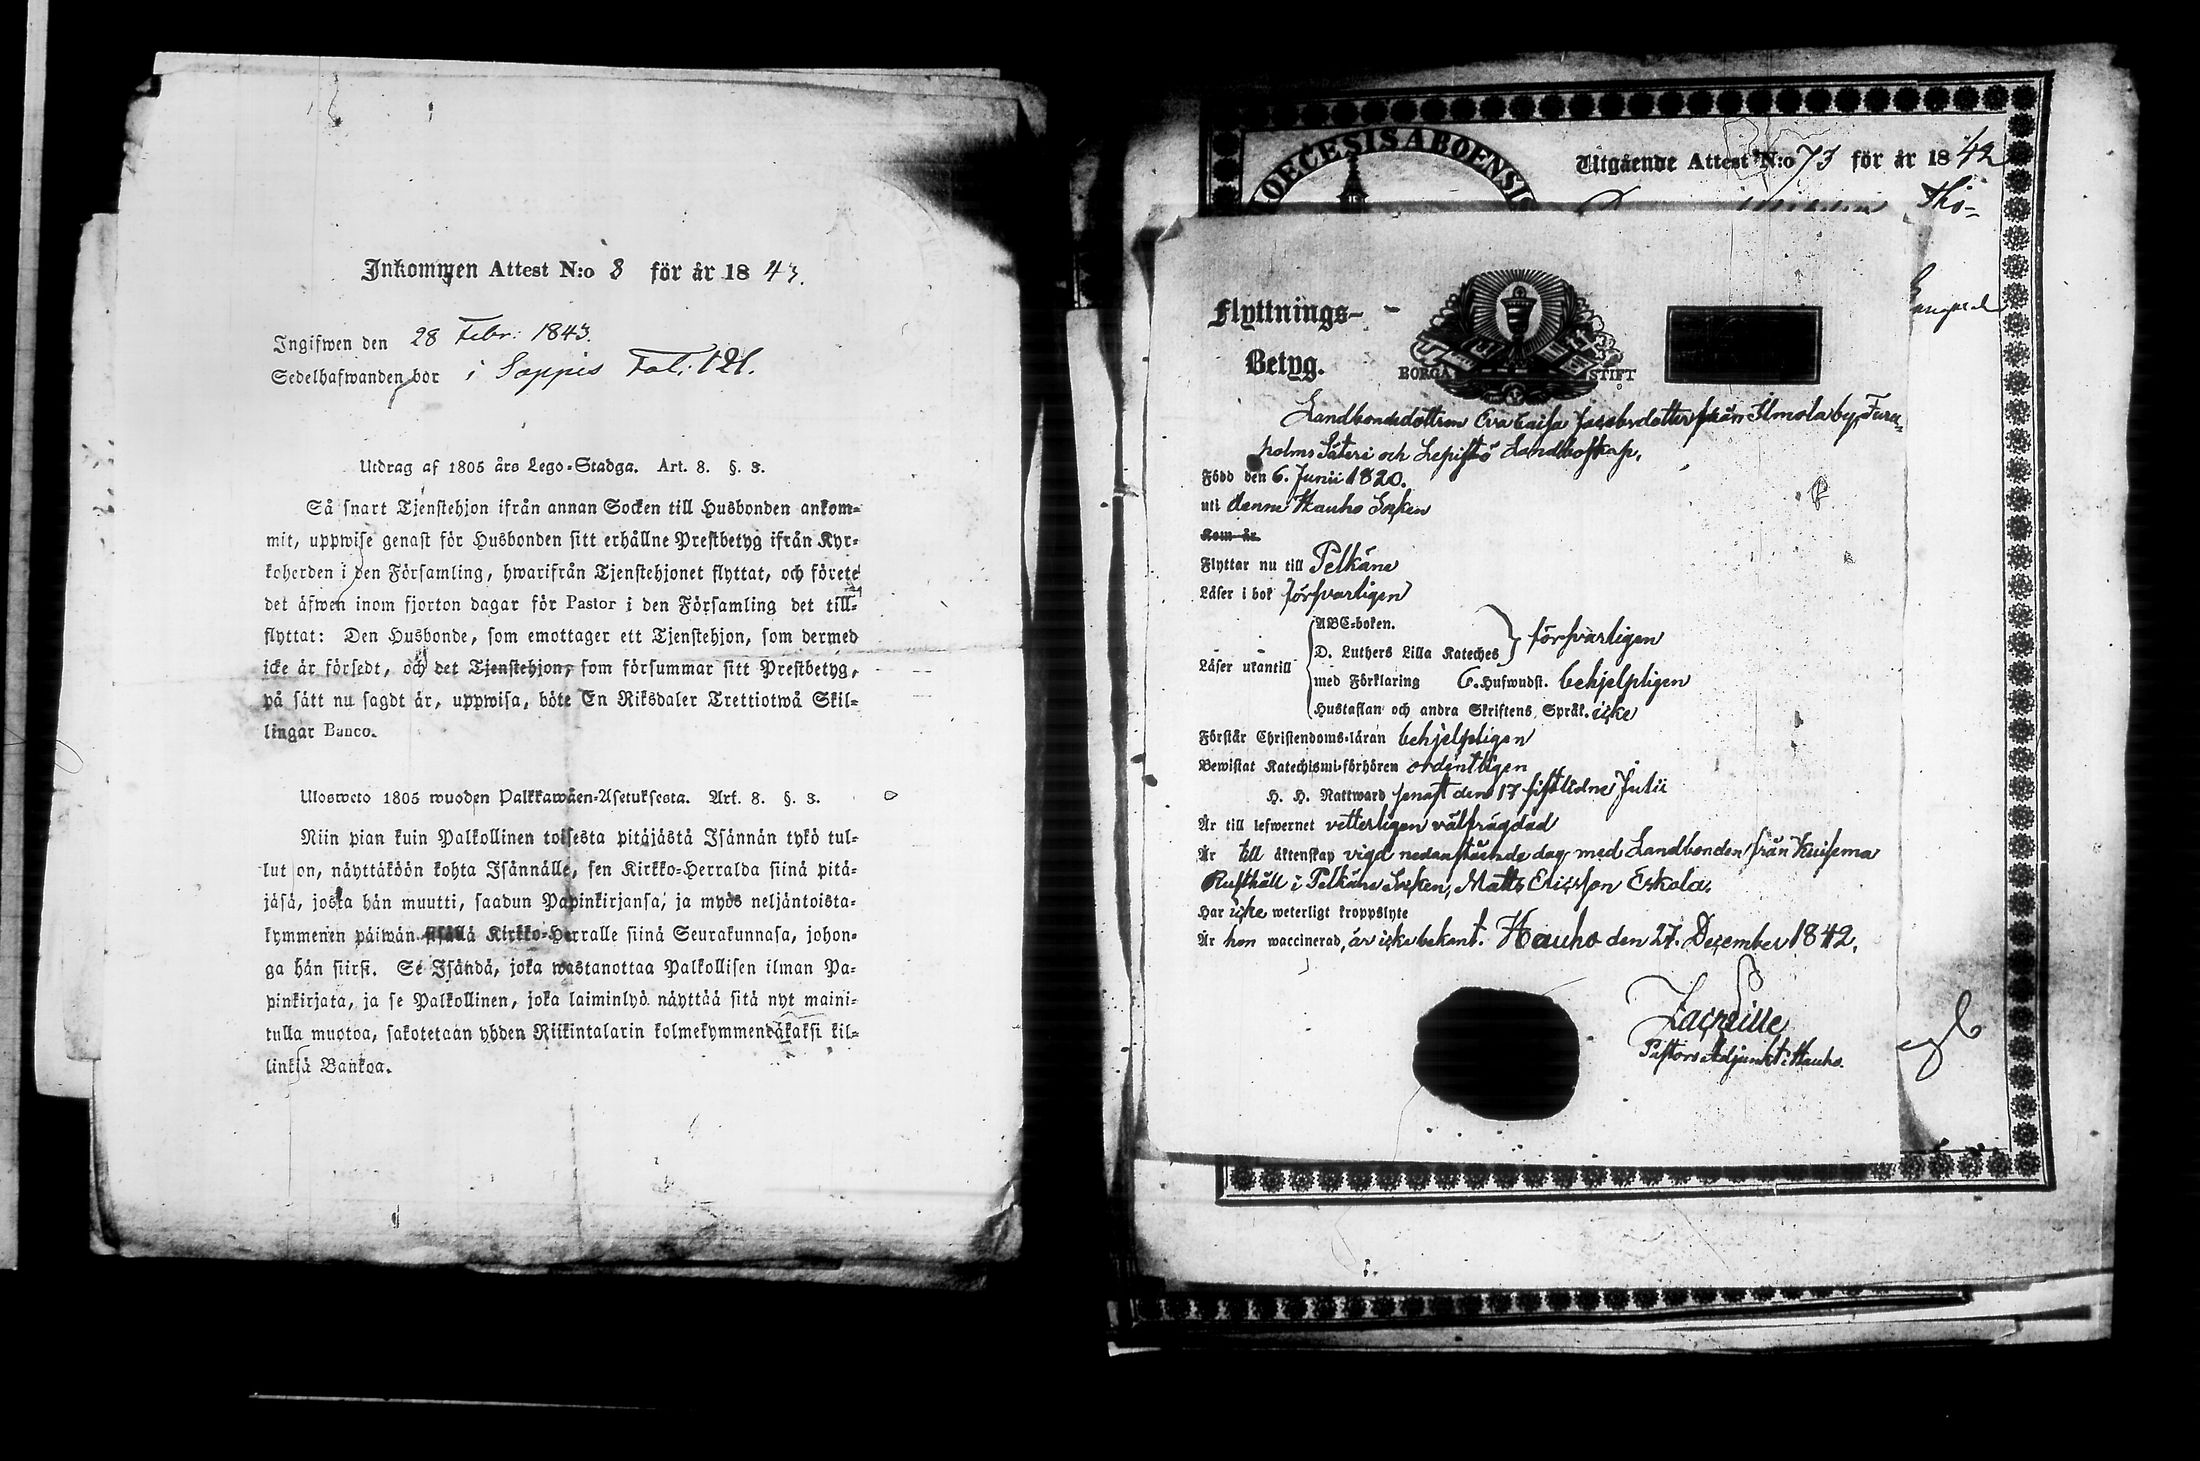 Inkommen Attest N:o 8 för år 1843.
Ingifwen den 28 Febr: 1843.
Sedelhafwanden bor i Sappis Fol: 121.
Utdrag af 1805 års Lego-Stadga. Art. 8. §. 3.
Så snart Tjenstehjon ifrån annan Socken till Husbonden ankom-
mit, uppwise genast för Husbonden sitt erhållne Prestbetyg ifrån Kyr-
koherden i den Församling, hwarifrån Tjenstehjonet flyttat, och förete
det äfwen inom fjorton dagar för Pastor i den Församling det till-
flyttat: Den Husbonde, som emottager ett Tjenstehjon, som dermed
icke är försedt, och det Tjenstehjon, som försummar sitt Prestbetyg,
på sätt nu sagdt är, uppwisa, böte En Riksdaler Trettiotwå Skil-
lingar Banco.
Ulosweto 1805 wuoden Palkkawäen-Asetuksesta. Art. 8. §. 3.
Niin pian kuin Palkollinen toisesta pitäjästä Isännän tykö tul-
lut on, näyttäköön kohta Isännälle, sen Kirkko-Herralda siinä pitä-
jäsä, josta hän muutti, saadun Papinkirjansa, ja myös neljäntoista-
kymmenen päiwän sisällä Kirkko-Herralle siinä Seurakunnasa, johon-
ga hän siirsi. Se Isändä, joka wastanottaa Palkollisen ilman Pa-
pinkirjata, ja se Palkollinen, joka laiminlyö näyttää sitä nyt maini-
tulla muotoa, sakotetaan yhden Riikintalarin kolmekymmendäkaksi kil-
linkiä Bankoa.
OECESIS ABOENSI
Utgående Attest N:o 73 för år 1842
Tho-
Flyttnings-
Betyg.
BORGÅ STIFT
Landbondedottren Eva Caisa Jacobsdotter från Ilmola by, Tura-
holms Säteri och Lepistö Landboskap.
Född den 6. Junii 1820.
uti denna Hauho Socken
Kom år.
Flyttar nu till Pelkäne
Läser i bok försvarligen
Läser utantill
ABC-boken.
D. Luthers Lilla Kateches försvarligen
med Förklaring 6. Hufwudst. behjelpligen
Hustaflan och andra Skriftens Språk. icke
Förstår Christendoms-läran behjelpligen
Bewistat Katechismi-förhören ordentligen
H. H. Nattward senast den 17 sistlidne Julii
Är till lefwernet vetterligen välfrägdad
Är till äktenskap vigd nedanstående dag med Landbonden från Kuisema
Rusthåll i Pelkäne Socken, Matts Ericsson Eskola.
Har icke weterligt kroppslyte
Är hon waccinerad, är icke bekant. Hauho den 27. December 1842.
Pastors Adjunkt i Hauho.